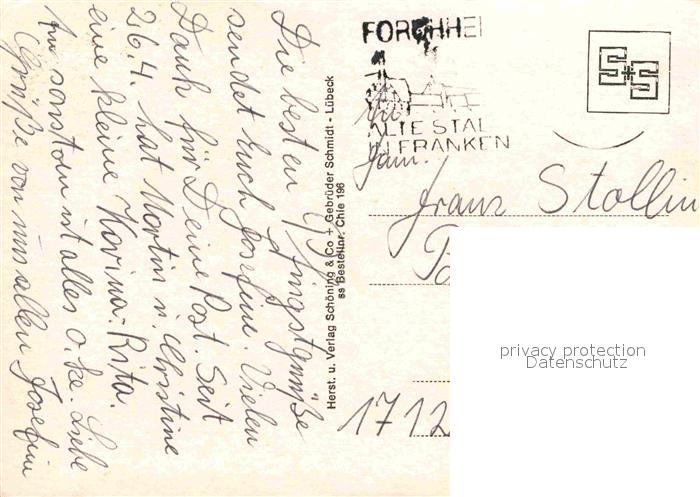 Die besten Pfingstgrüße
sendet Euch Josefine. Vielen
Dank für Deine Post. Seit
26.4. hat Martin u. Christine
eine kleine Karina-Rita.
Ansonsten ist alles o.ke. Liebe
Grüße von uns allen Josefine
Herst. u. Verlag Schöning & Co + Gebrüder Schmidt - Lübeck
ss Bestellnr. Chie 196
FORCHHEI
ALTE STAL
IN FRANKEN
S+S
An
Fam.
Franz Stollin
1712
privacy protection
Datenschutz